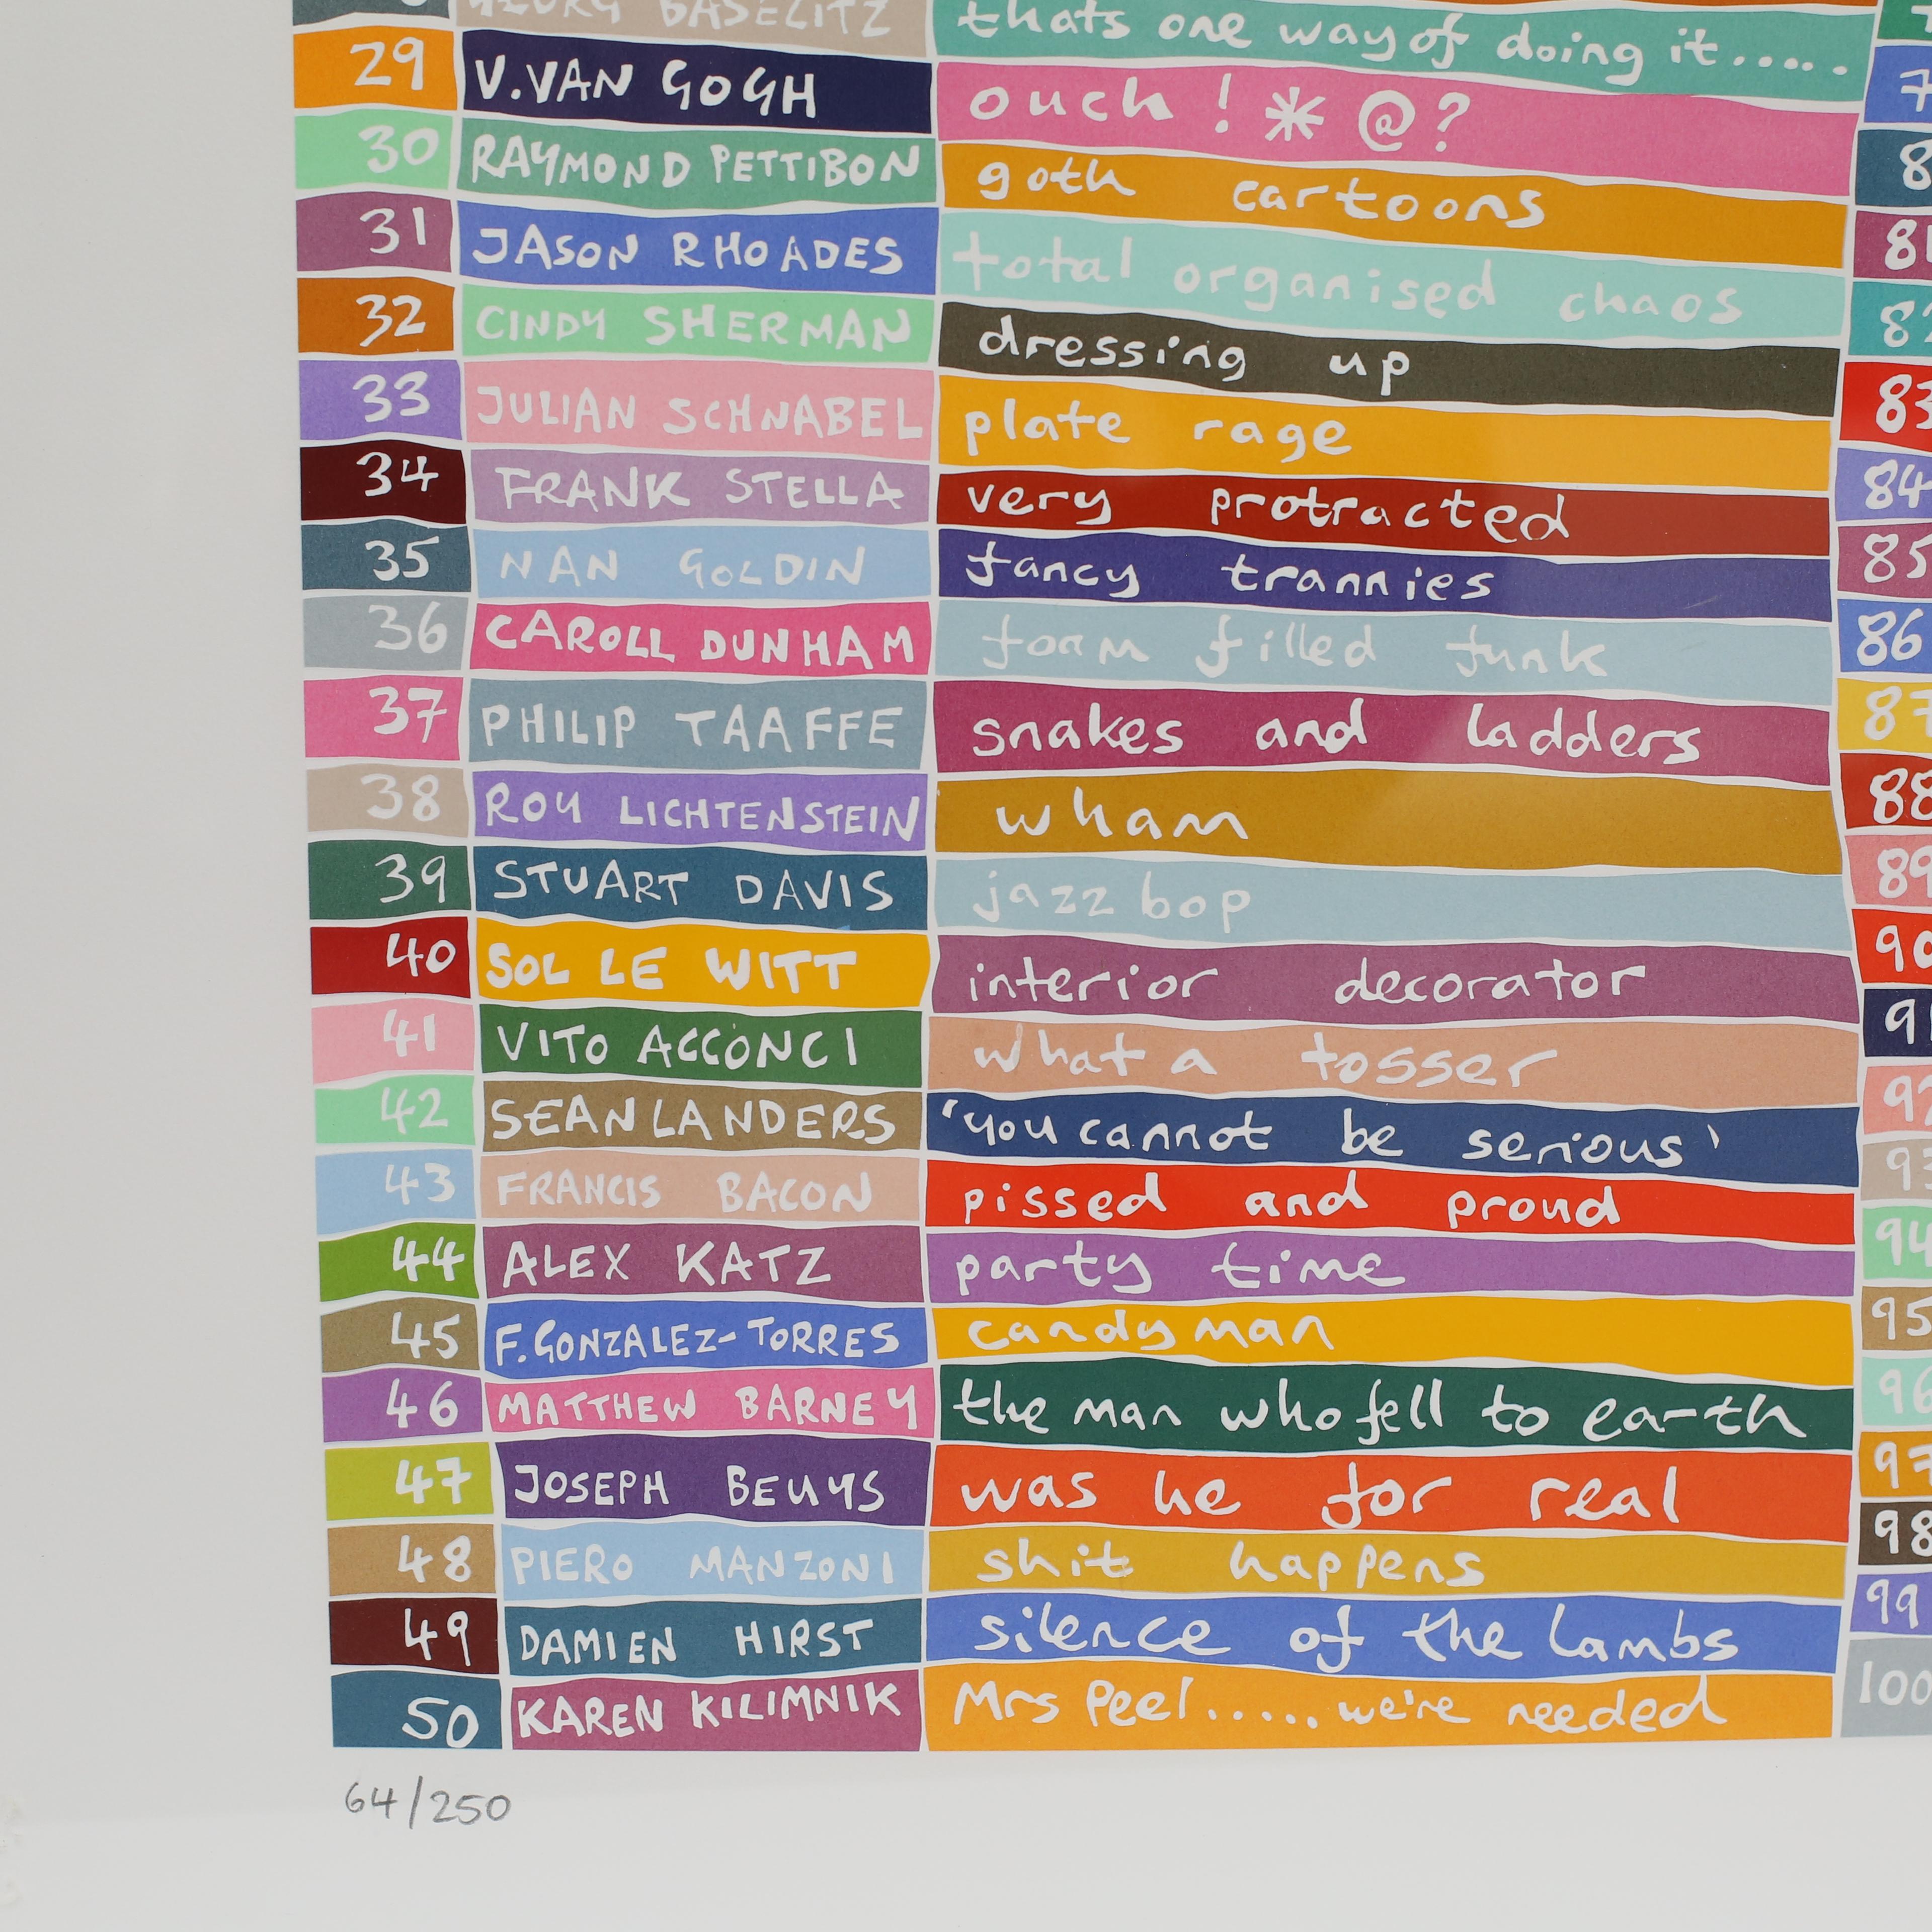 GEORG BASELITZ thats one way of doing it.....
29 V.VAN GOGH ouch ! * @ ?
30 RAYMOND PETTIBON goth cartoons
31 JASON RHOADES total organised chaos
32 CINDY SHERMAN dressing up
33 JULIAN SCHNABEL plate rage
34 FRANK STELLA very protracted
35 NAN GOLDIN fancy trannies
36 CAROLL DUNHAM foam filled funk
37 PHILIP TAAFFE snakes and ladders
38 ROY LICHTENSTEIN wham
39 STUART DAVIS jazz bop
40 SOL LE WITT interior decorator
41 VITO ACCONCI what a tosser
42 SEAN LANDERS 'you cannot be serious'
43 FRANCIS BACON pissed and proud
44 ALEX KATZ party time
45 F.GONZALEZ-TORRES candyman
46 MATTHEW BARNEY the man who fell to earth
47 JOSEPH BEUYS was he for real
48 PIERO MANZONI shit happens
49 DAMIEN HIRST silence of the lambs
50 KAREN KILIMNIK Mrs Peel..... we're needed
81
82
83
84
85
86
87
88
89
90
91
92
93
94
95
96
97
98
99
100
64/250